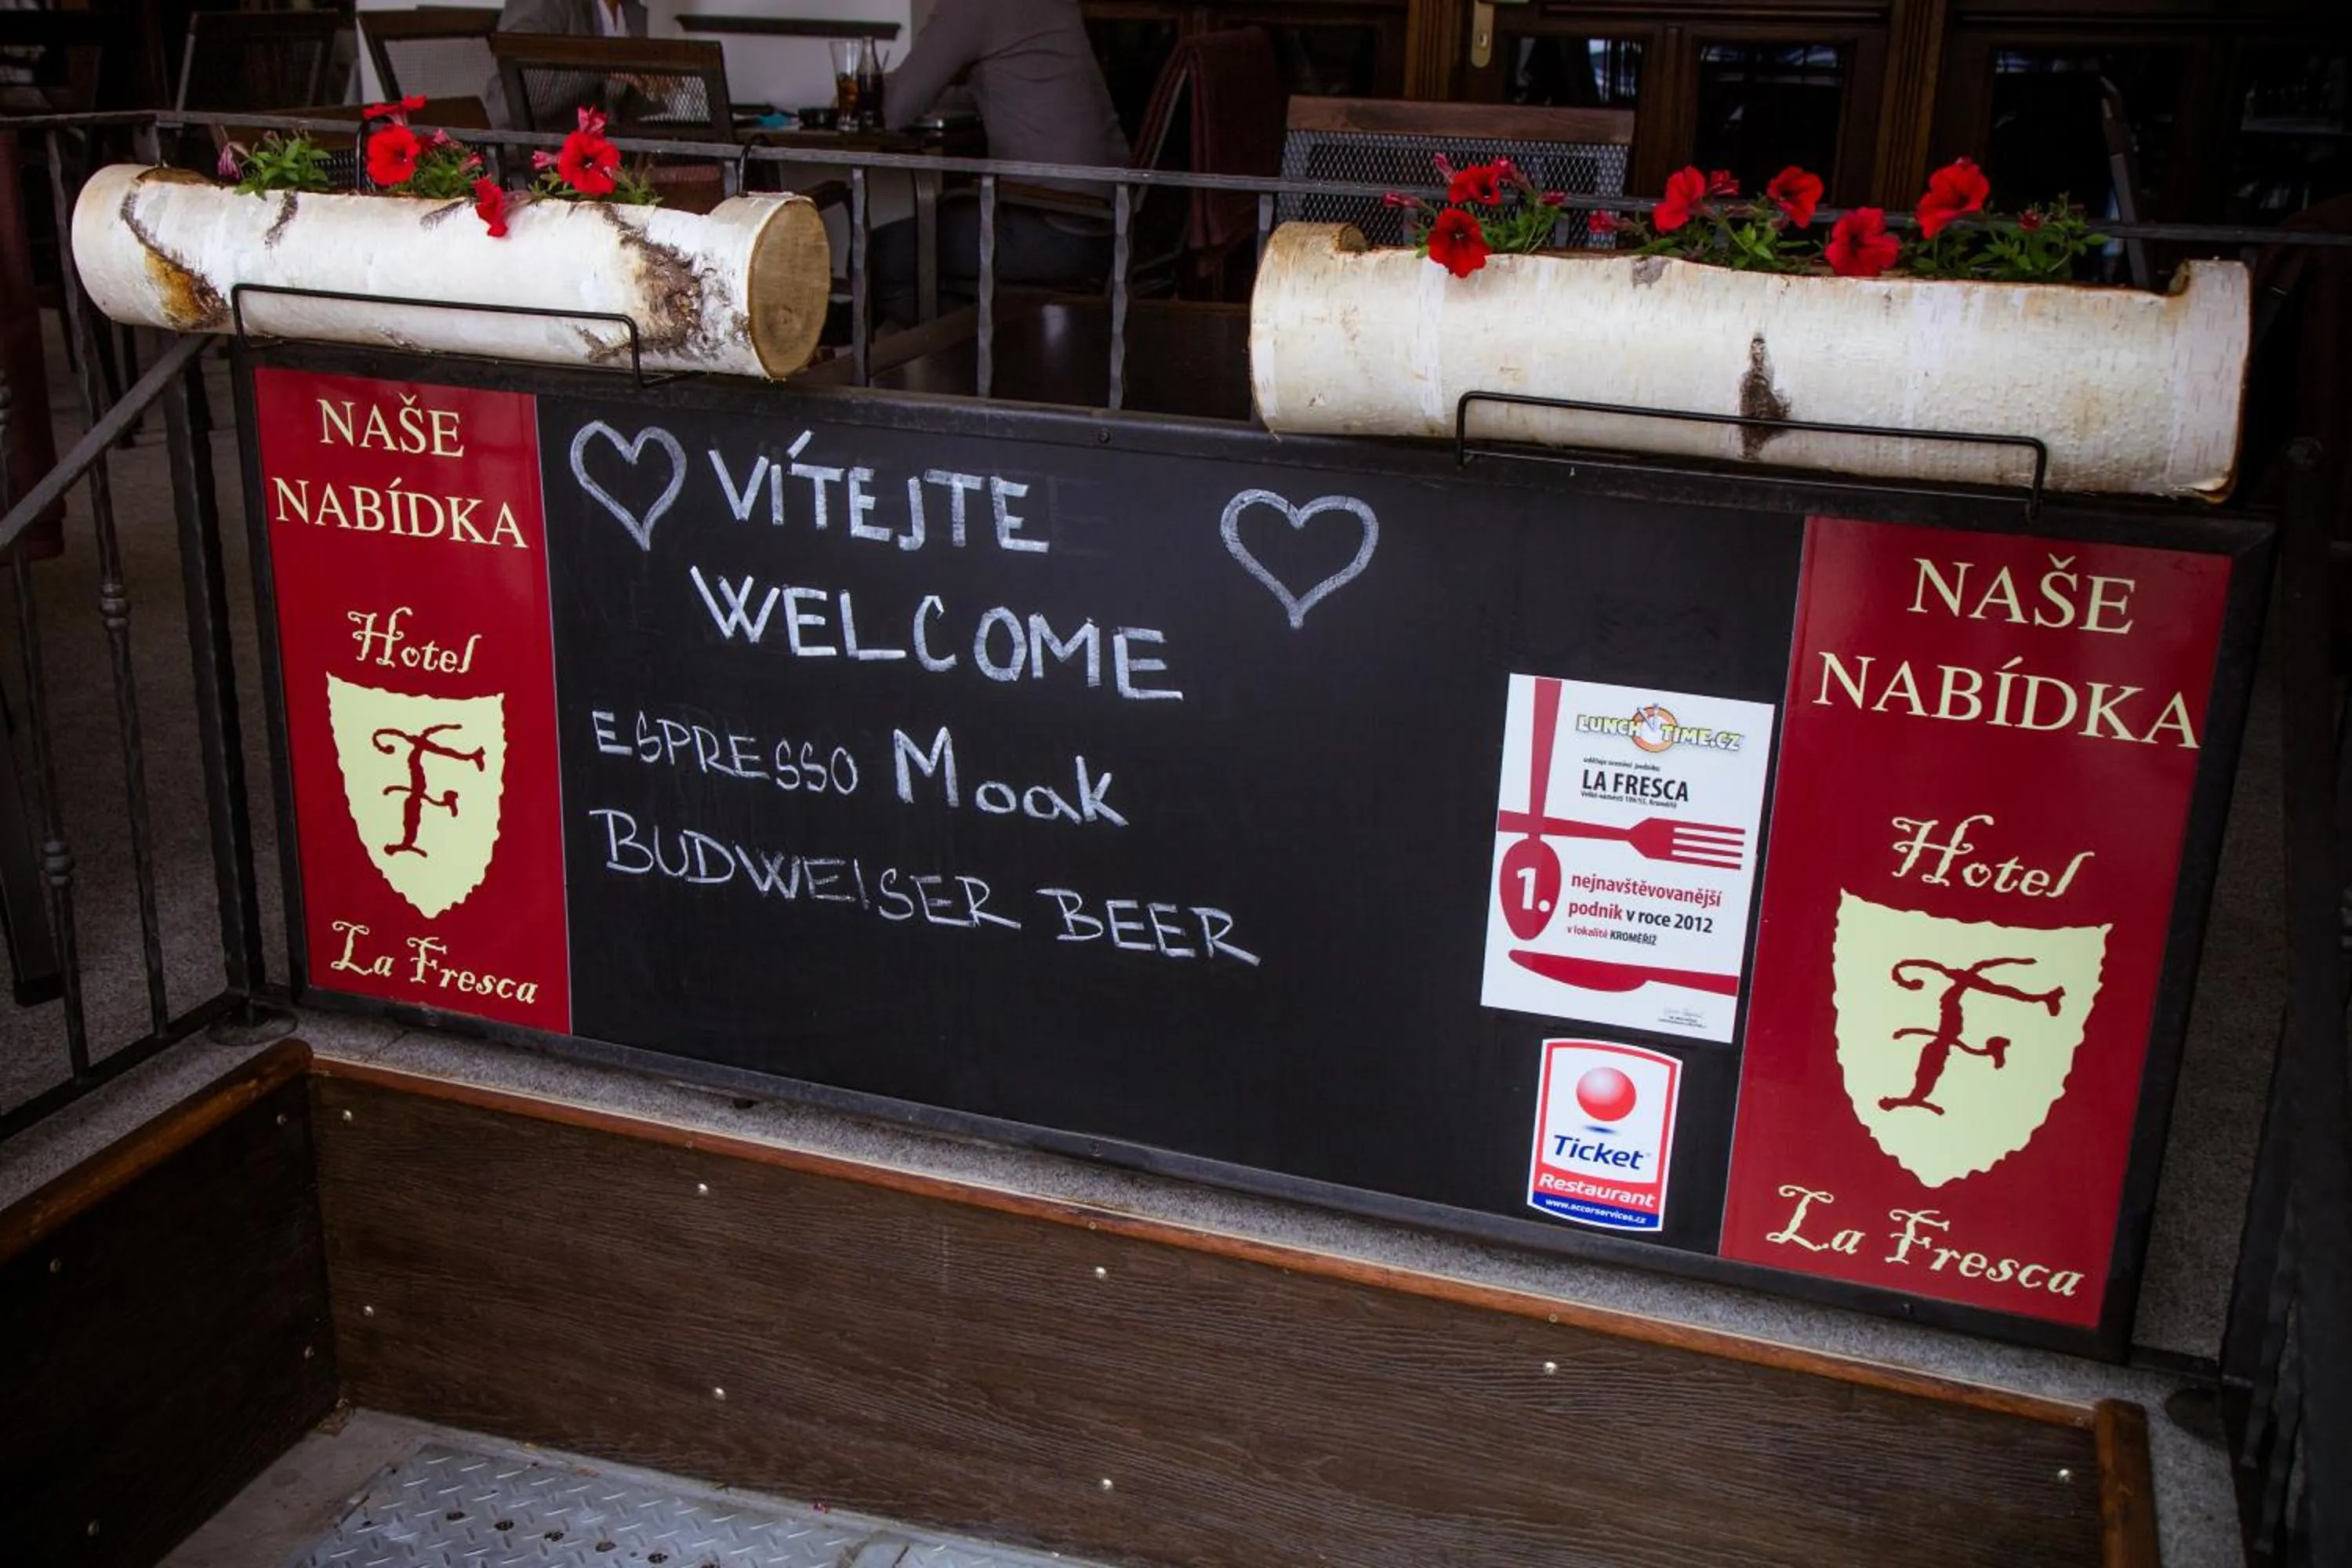 NAŠE
NABÍDKA
Hotel
F
La Fresca
VÍTEJTE
WELCOME
ESPRESSO Moak
BUDWEISER BEER
LUNCH TIME.CZ
uděluje ocenění podniku
LA FRESCA
Velké náměstí 109/55, Kroměříž
1.
nejnavštěvovanější
podnik v roce 2012
v lokalitě KROMĚŘÍŽ
Ticket
Restaurant
www.accorservices.cz
NAŠE
NABÍDKA
Hotel
F
La Fresca